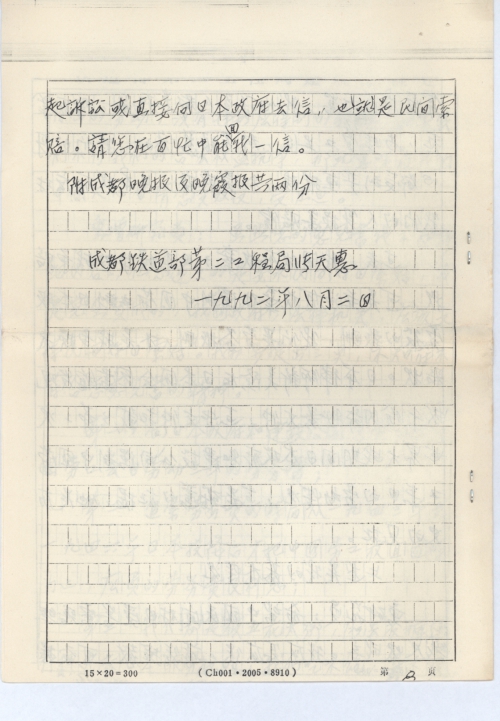 起訴訟或直接向日本政府去信，也就是民间索
赔。請您在百忙中能回我一信。
附成都晚报及晚霞报共两份
成都铁道部第二工程局 天惠
一九九二年八月二日
15×20=300 （Ch001·2005·8910） 第 页